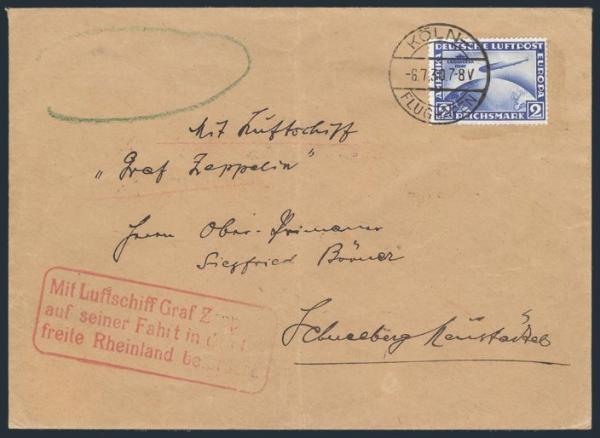 KÖLN
-6.7.30.7-8V
FLUGHAFEN
DEUTSCHE LUFTPOST
EUROPA
AMERIKA
2 REICHSMARK 2
Mit Luftschiff
„Graf Zeppelin“
Herrn Ober-Primaner
Siegfried Börner
Schneeberg Neustädtel
Mit Luftschiff Graf Zepp
auf seiner Fahrt in
freite Rheinland